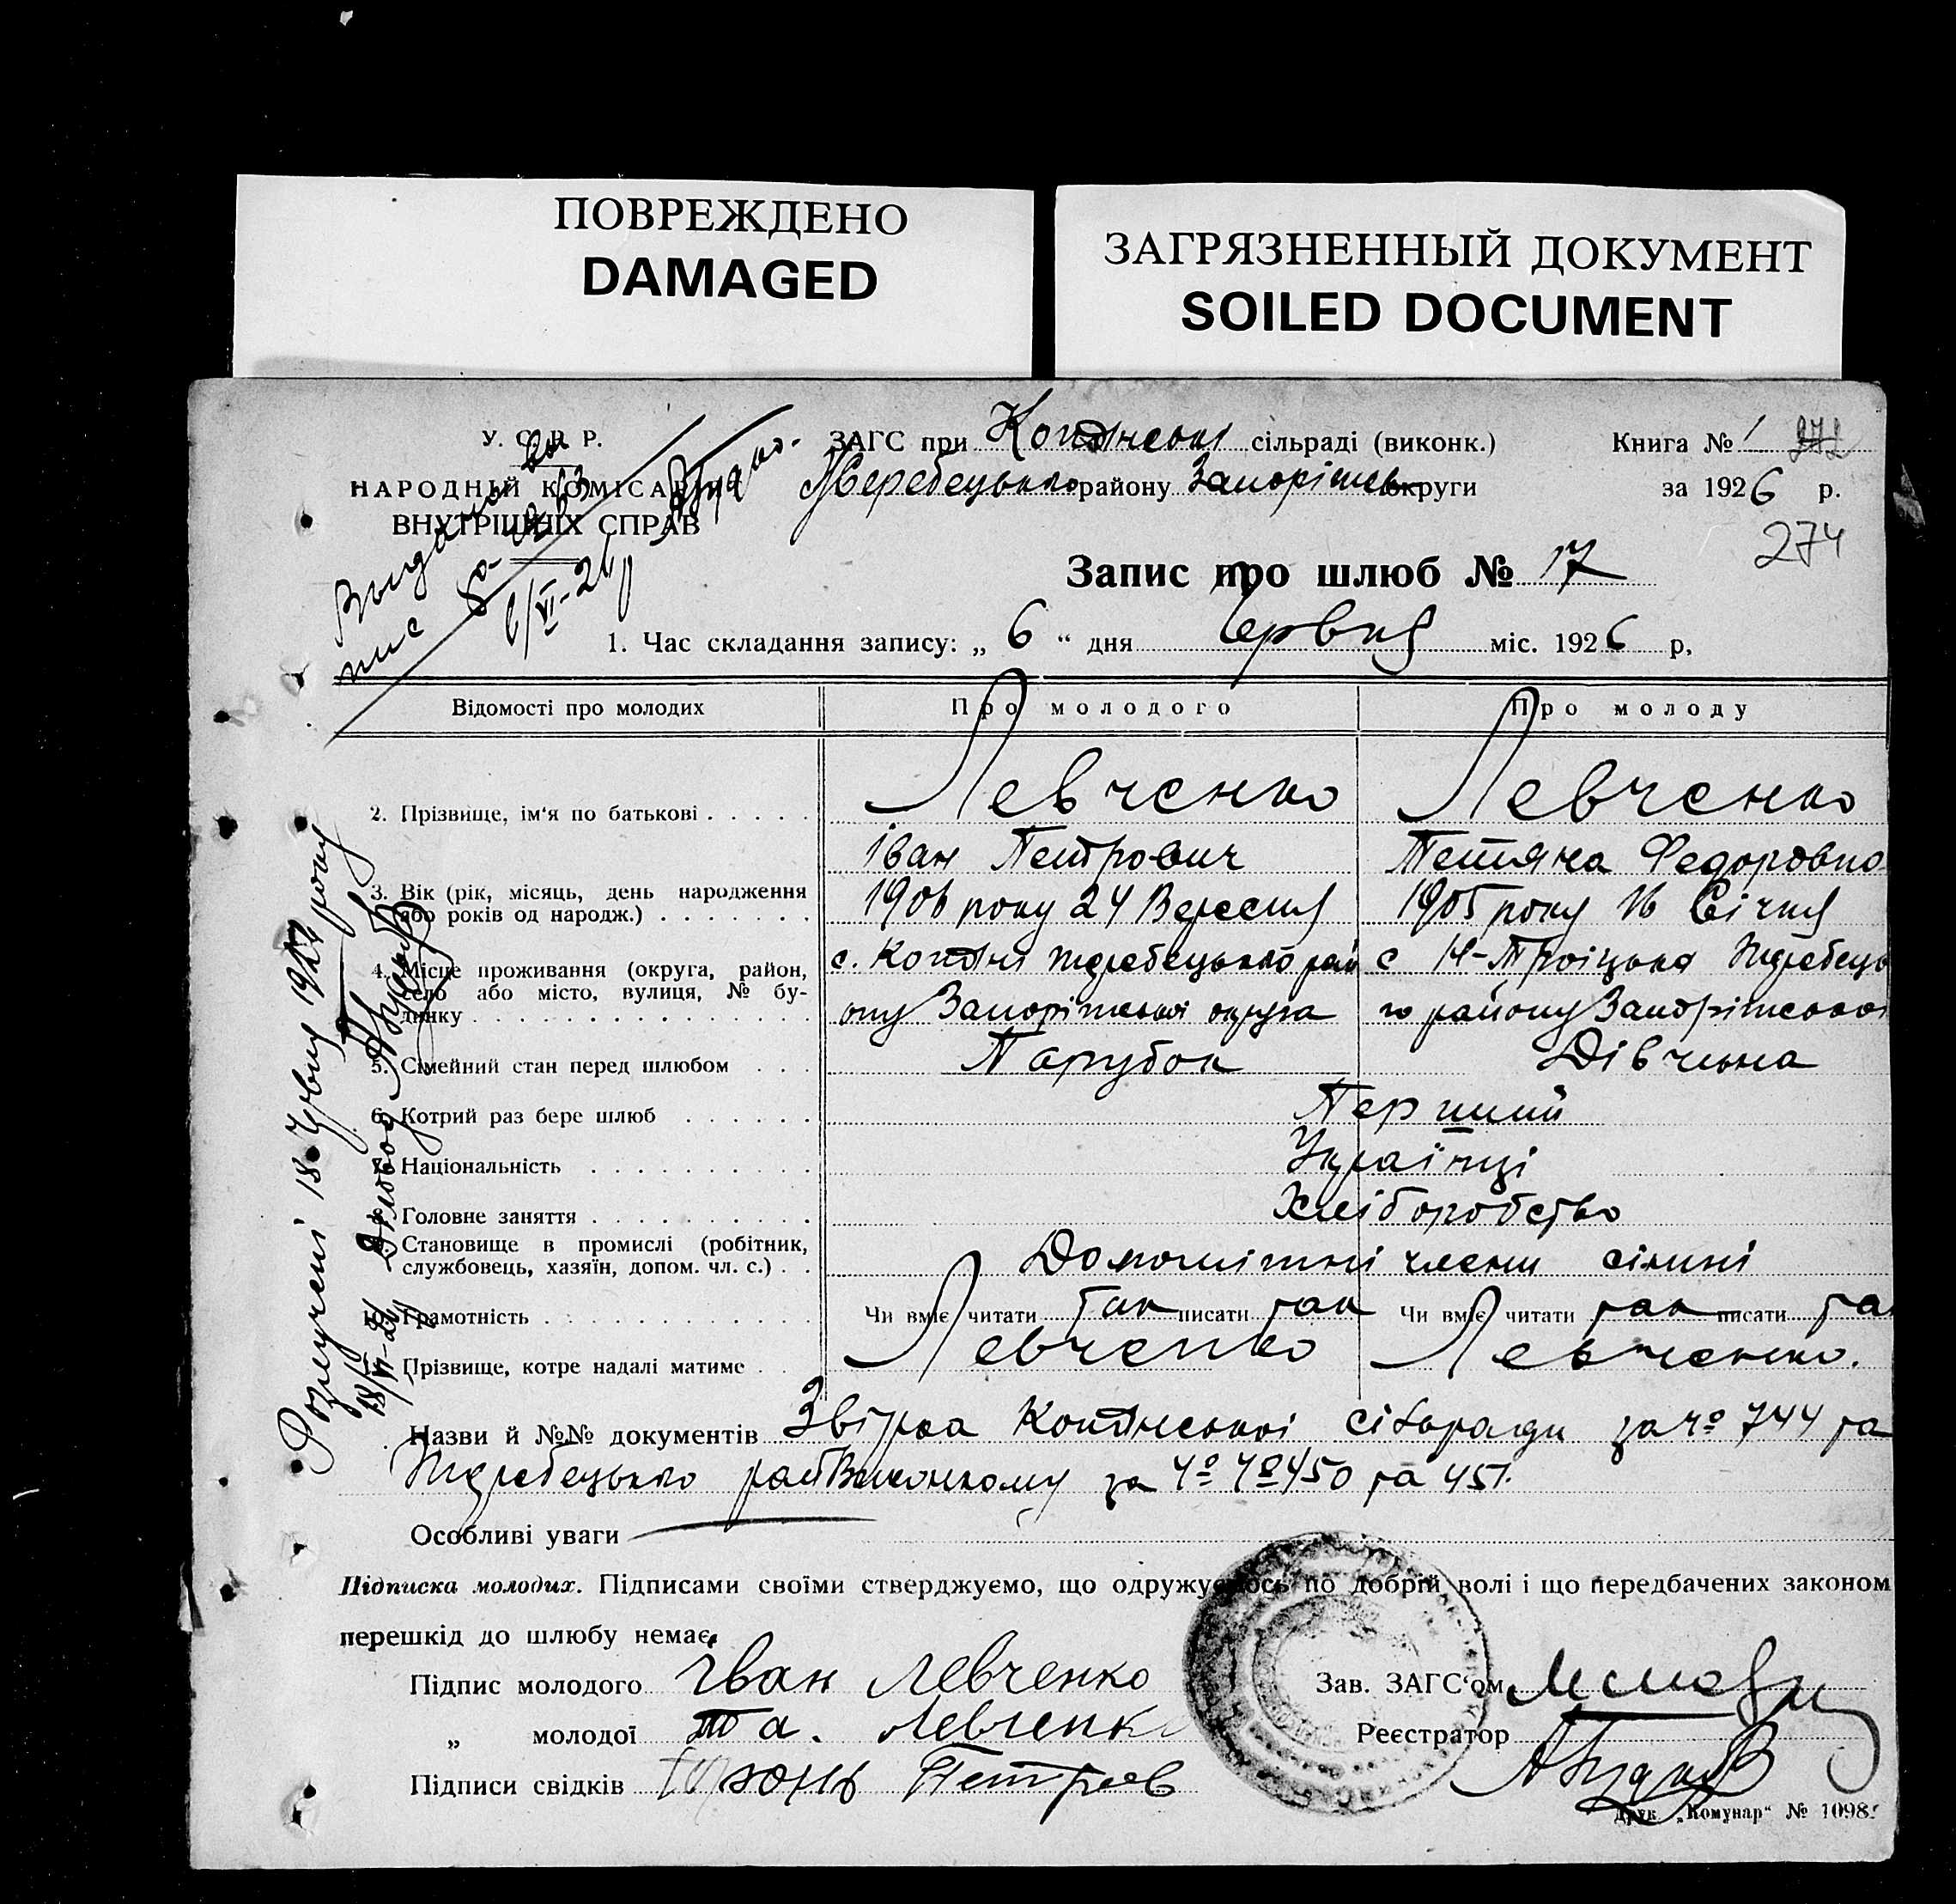 ПОВРЕЖДЕНО
DAMAGED
ЗАГРЯЗНЕННЫЙ ДОКУМЕНТ
SOILED DOCUMENT
У. С. Р. Р.
НАРОДНЫЙ КОМІСАРІЯТ
ВНУТРІШНІХ СПРАВ
ЗАГС при Копанськ сільраді (виконк.)
Жеребецького району Запоріжськ округи
Книга № 1 272
за 1926 р.
274
Запис про шлюб № 17
1. Час складання запису: „ 6 “ дня Червня міс. 1926 р,
Відомості про молодих Про молодого Про молоду
2. Прізвище, ім'я по батькові Левченко Левченко
Іван Петрович Тетяна Федоровна
3. Вік (рік, місяць, день народження або років од народж.) 1906 року 24 Вересня 1905 року 16 Січня
4. Місце проживання (округа, район, село або місто, вулиця, № будинку
с. Копані Жеребецького рай с Н-Троїцька Жеребець
ону Запоріжської округа го району Запоріжської
5. Сімейний стан перед шлюбом Парубок Дівчина
6. Котрий раз бере шлюб Перший
7. Національність Українці
8. Головне заняття Хліборобство
9. Становище в промислі (робітник, службовець, хазяїн, допом. чл. с.) Допоміжні члени сімні
10. Грамотність Чи вміє читати так писати так Чи вміє читати так писати та
Прізвище, котре надалі матиме Левченко Левченко.
Назви й №№ документів Звірка Копанської сільради за № 744 та
Жеребецького райВиконкому за № № 450 та 451.
Особливі уваги
Підписка молодих. Підписами своїми стверджуємо, що одружуємось по добрій волі і що передбачених законом
перешкід до шлюбу немає.
Підпис молодого Іван Левченко
„ молодої Та. Левченк
Підписи свідків Петров
Зав. ЗАГС'ом
Реєстратор
Друк „Комунар“ № 1098
6/VI-26
Розлучені 18 Червня 1926 року
18/VI-26